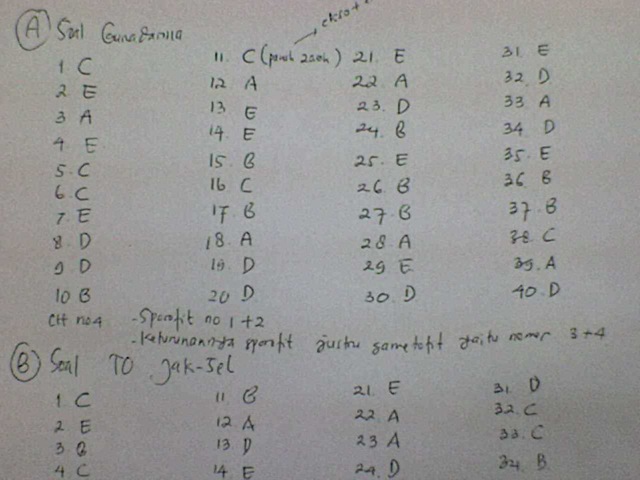 ekso +
A Soal Gunadarma
1 C 11. C (panah 2 arah) 21. E 31. E
2 E 12 A 22. A 32. D
3 A 13 E 23. D 33 A
4. E 14. E 24. B 34. D
5. C 15. B 25. E 35. E
6. C 16 C 26. B 36 B
7. E 17 B 27. B 37. B
8. D 18. A 28. A 38. C
9 D 19. D 29 E 39. A
10 B 20 D 30. D 40. D
no 4 - Sporofit no 1 + 2
- Keturunannya sporofit justru gametofit yaitu nomer 3 + 4
B Soal TO Jak-Sel
1. C 11. B 21. E 31. D
2 E 12 A 22. A 32. C
3 B 13 D 23 A 33. C
4 C 14 E 24. D 34. B